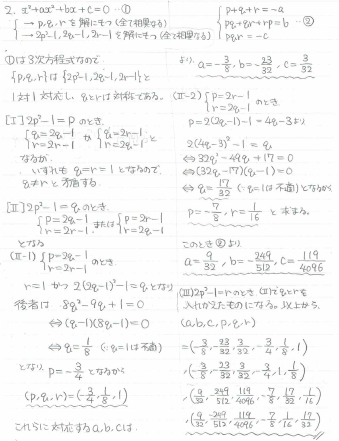 2. x³+ax²+bx+c=0 …①
→ p, q, r を解にもつ (全て相異なる)
→ 2p²-1, 2q-1, 2r-1 を解にもつ (全て相異なる)
①は3次方程式なので
{p, q, r} は {2p²-1, 2q-1, 2r-1} と
1対1対応し、qとrは対称である。
[I] 2p²-1=p のとき.
{q=2q-1
r=2r-1 か {q=2r-1
r=2q-1 と
なるが、
いずれも q=r=1 となるので、
q≠r と矛盾する.
[II] 2p²-1=q のとき.
{p=2q-1
r=2r-1 または {p=2r-1
r=2q-1
となる
(II-1) {p=2q-1
r=2r-1 のとき.
r=1 かつ 2(2q-1)²-1=q となり
後者は 8q²-9q+1=0
⇔(q-1)(8q-1)=0
⇔q=1/8 (∵q=1は不適)
となり、p=-3/4 となるから
(p, q, r)=(-3/4, 1/8, 1)
これらに対応する a, b, c は、
{p+q+r=-a
pq+qr+rp=b …②
pqr=-c
より、a=-3/8, b=-23/32, c=3/32
(II-2) {p=2r-1
r=2q-1 のとき.
p=2(2q-1)-1=4q-3 より
2(4q-3)²-1=q
⇔32q²-49q+17=0
⇔(32q-17)(q-1)=0
⇔q=17/32 (∵q=1は不適)となるから
p=-7/8, r=1/16 と求まる.
このとき②より、
a=9/32, b=-249/512, c=119/4096
(III) 2p²-1=r のとき (II)でqとrを
入れかえたものになる. 以上から、
(a, b, c, p, q, r)
=(-3/8, -23/32, 3/32, -3/4, 1/8, 1)
,(-3/8, -23/32, 3/32, -3/4, 1, 1/8)
,(9/32, -249/512, 119/4096, -7/8, 17/32, 1/16)
,(9/32, -249/512, 119/4096, -7/8, 1/16, 17/32)